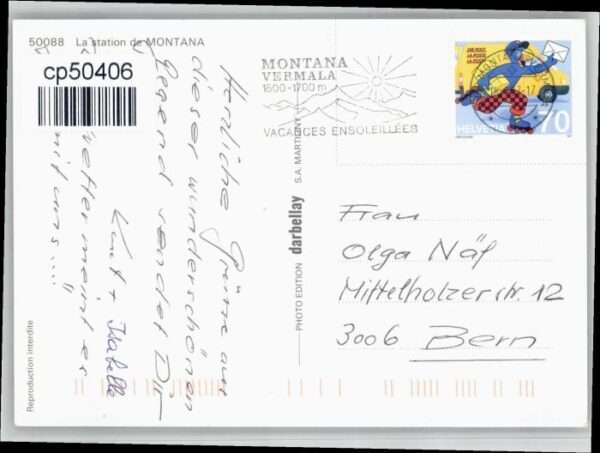 50088 La station de MONTANA
cp50406
Herzliche Grüsse aus
dieser wunderschönen
Gegend sendet Dir
Kurt + Isabelle
Wetter meint es
mit uns....
Reproduction interdite
PHOTO EDITION darbellay S.A. MARTIGNY
MONTANA
VERMALA
1500-1700 m
VACANCES ENSOLEILLÉES
HELVETIA 70
Frau
Olga Näf
Mittelholzerstr. 12
3006 Bern